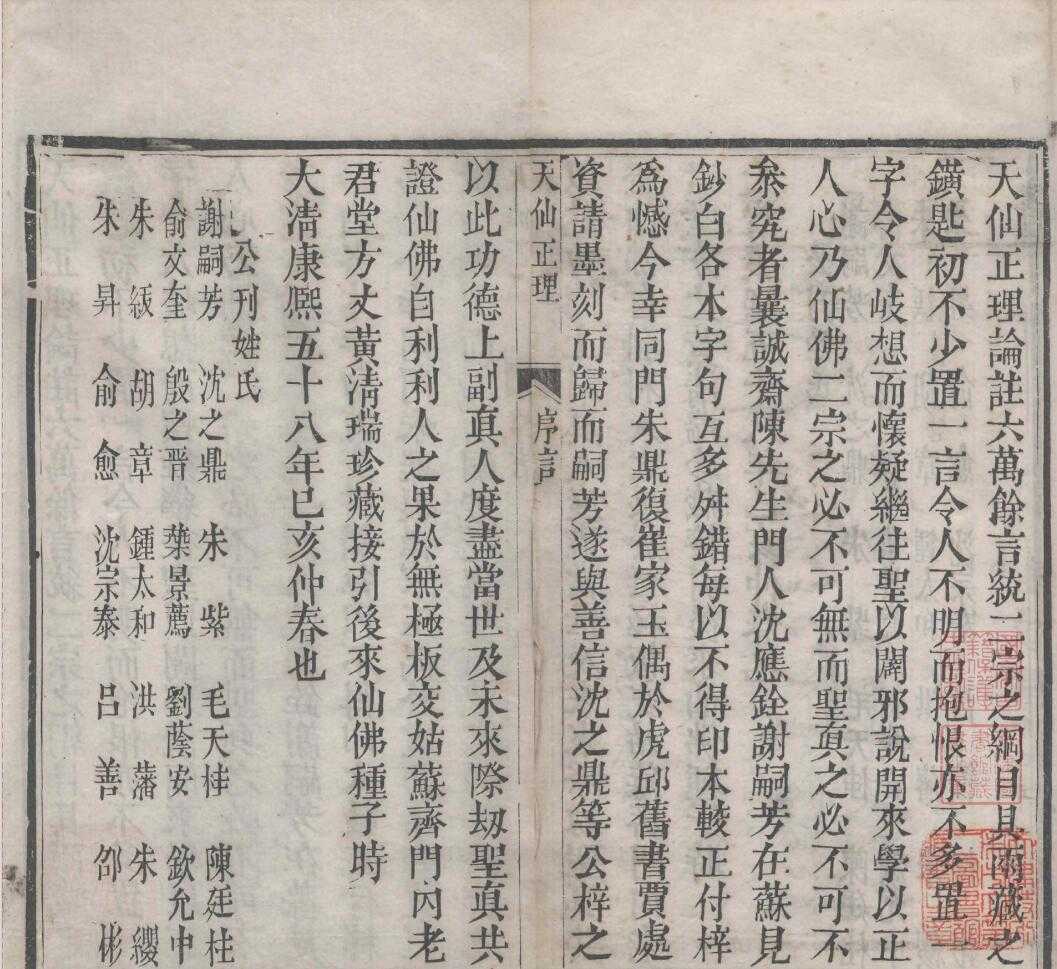 天仙正理論註六萬餘言統二宗之綱目具兩藏之
鑰匙初不少置一言令人不明而抱恨亦不多置一
字令人岐想而懷疑繼往聖以闢邪說開來學以正
人心乃仙佛二宗之必不可無而聖真之必不可不
叅究者曩誠齋陳先生門人沈應銓謝嗣芳在蘇見
鈔白各本字句互多舛錯每以不得印本較正付梓
為憾今幸同門朱鼎復崔家玉偶於虎邱舊書賈處
資請墨刻而歸而嗣芳遂與善信沈之鼎等公梓之
天仙正理 序言
以此功德上副真人度盡當世及未來際劫聖真共
證仙佛自利利人之果於無極板交姑蘇齊門內老
君堂方丈黃清瑞珍藏接引後來仙佛種子時
大清康熙五十八年己亥仲春也
公刊姓氏
謝嗣芳 沈之鼎 朱紫 毛天桂 陳廷柱
俞文奎 殷之晋 葉景薦 劉蔭安 欽允中
朱紱 胡章 鍾太和 洪藩 朱纓
朱昇 俞愈 沈宗泰 呂善 邵彬